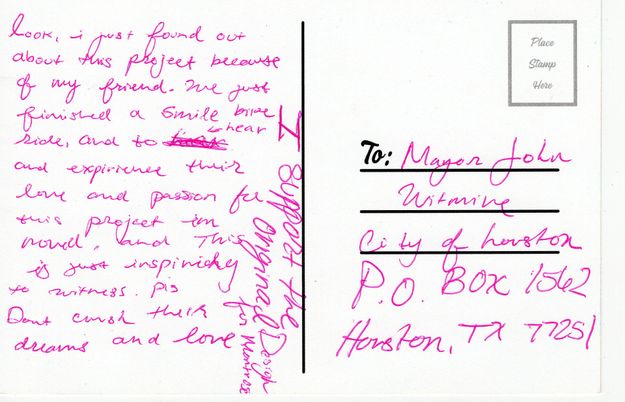 look, i just found out
about this project because
of my friend. we just
finished a 5mile bike
ride, and to hear
and expirience their
love and passion for
this project im
moved, and This
is just inspiring
to witness. pls
Dont crush their
dreams and love
I support the
original Design
for Montrose
Place
Stamp
Here
To: Mayor John
Witmire
City of houston
P.O. BOX 1562
Houston, TX 77251